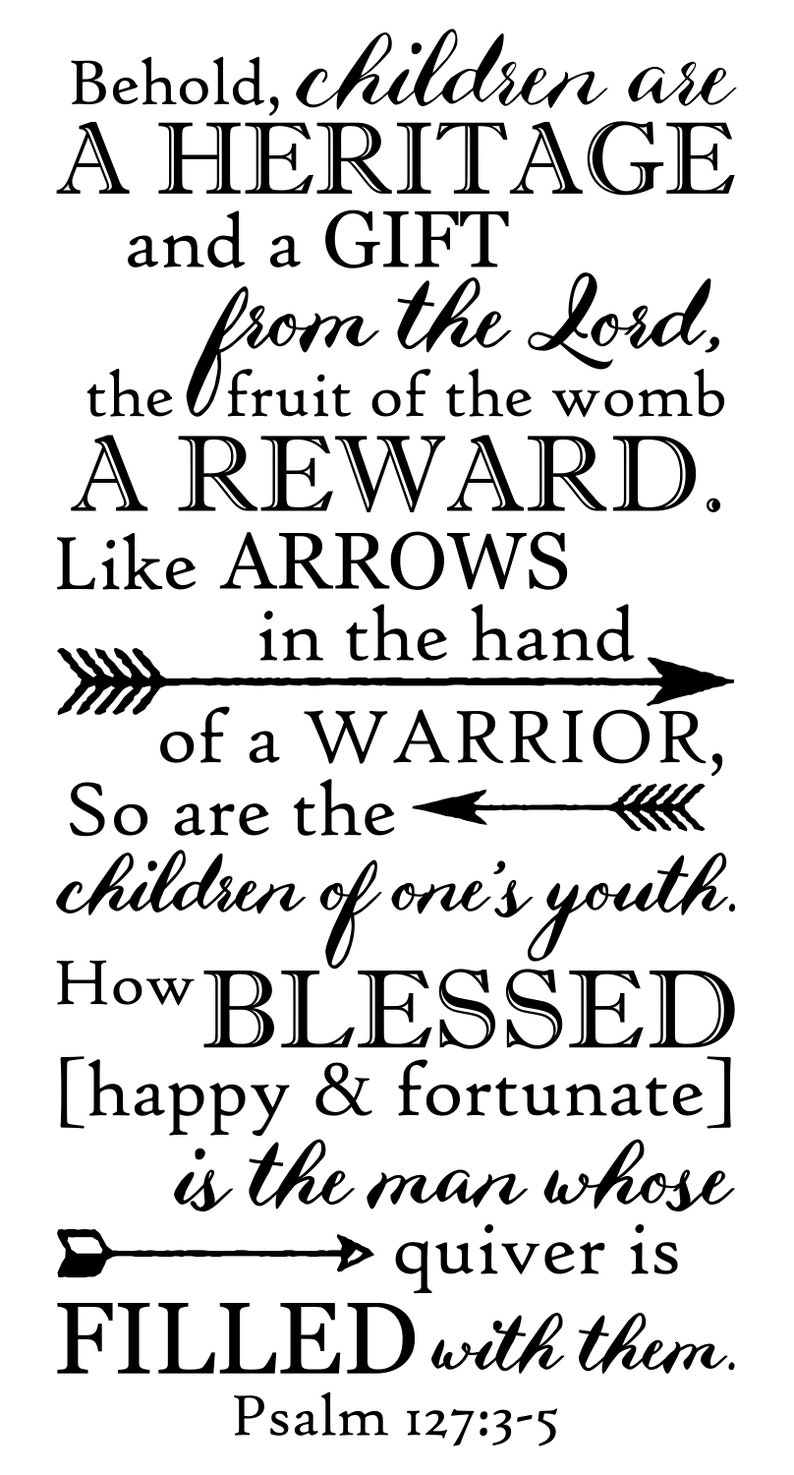 Behold, children are
A HERITAGE
and a GIFT
from the Lord,
the fruit of the womb
A REWARD.
Like ARROWS
in the hand
of a WARRIOR,
So are the
children of one's youth.
How BLESSED
[happy & fortunate]
is the man whose
quiver is
FILLED with them.
Psalm 127:3-5